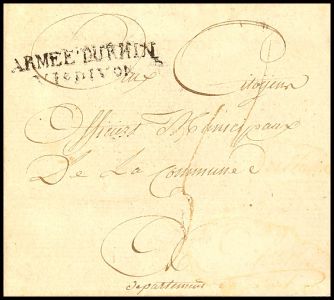 ARMEE DU RHIN
Aux Citoyens
Officiers Municipaux
De La Commune
Departement